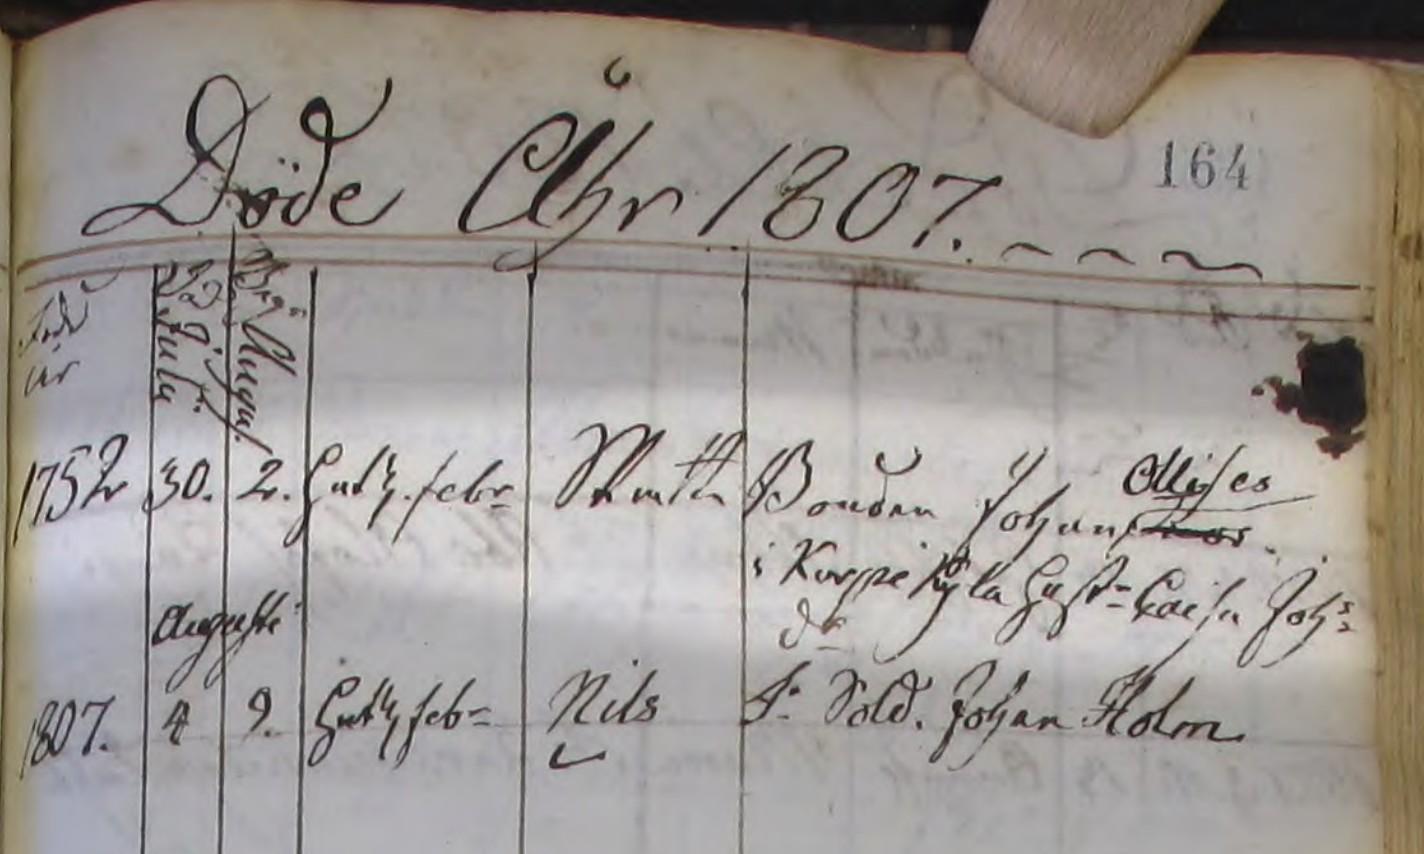 Döde Åhr 1807.
164
Född
år
Död
July
Begr.
August.
1752 30. 2. febr Bonden Johan Mises
i Korpi kyla Gust= Caisa Joh:s
dr
Auguste
1807. 4 9. feb= Nils F. Sold. Johan Holm